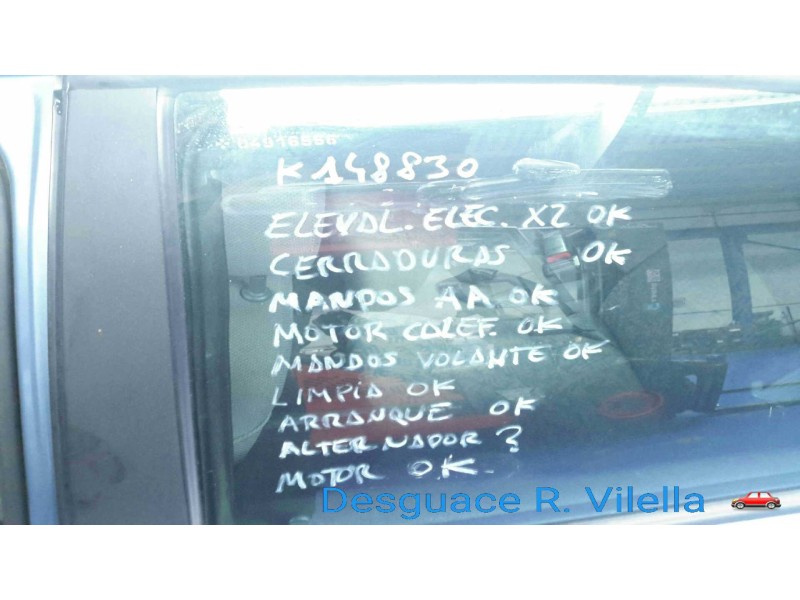 K148830
ELEVAL. ELEC. X2 OK
CERRADURAS OK
MANDOS AA OK
MOTOR CALEF. OK
MANDOS VOLANTE OK
LIMPIA OK
ARRANQUE OK
ALTERNADOR ?
MOTOR OK.
Desguace R. Vilella